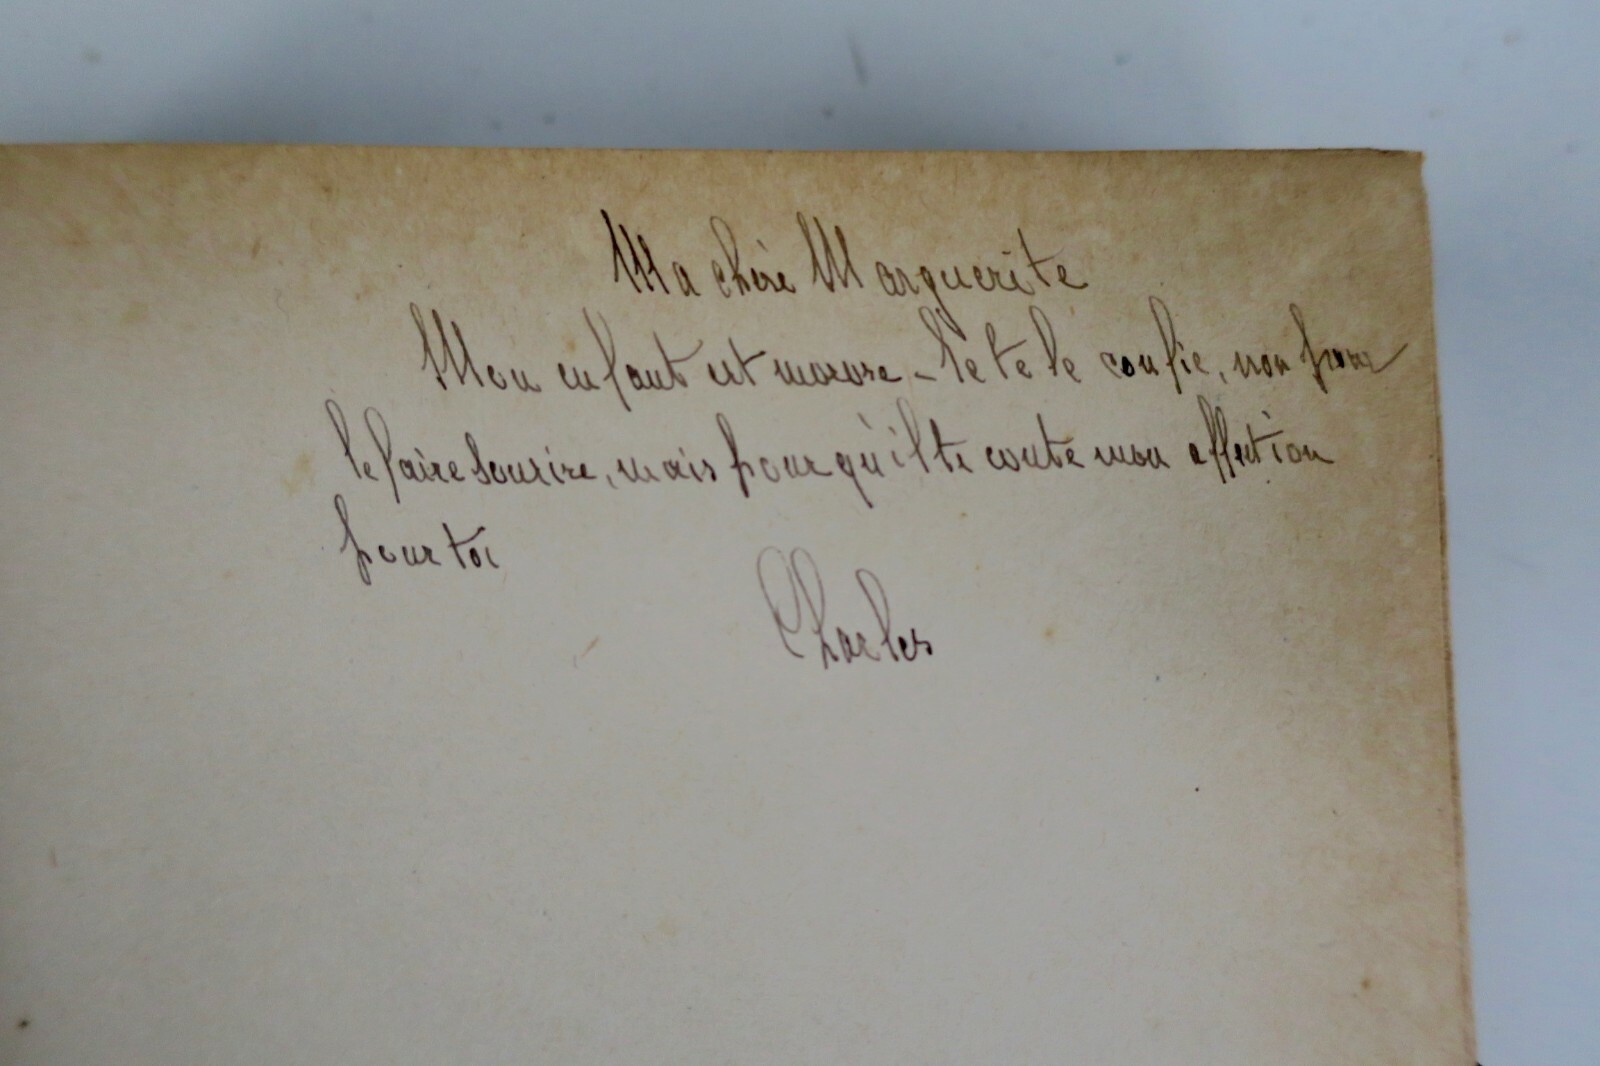 Ma chère Marguerite
Mon enfant est morose - Je te le confie, non pour
le faire sourire, mais pour qu'il te conte mon affection
pour toi
Charles